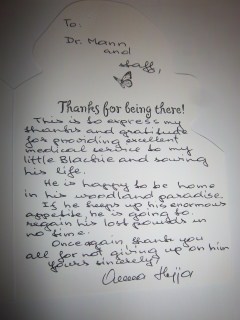 To:
Dr. Mann
and
staff,
Thanks for being there!
This is to express my
thanks and gratitude
for providing excellent
medical service to my
little Blackie and saving
his life.
He is happy to be home
in his woodland paradise.
If he keeps up his enormous
appetite he is going to
regain his lost pounds in
no time.
Once again, thank you
all for not giving up on him
Yours sincerely,